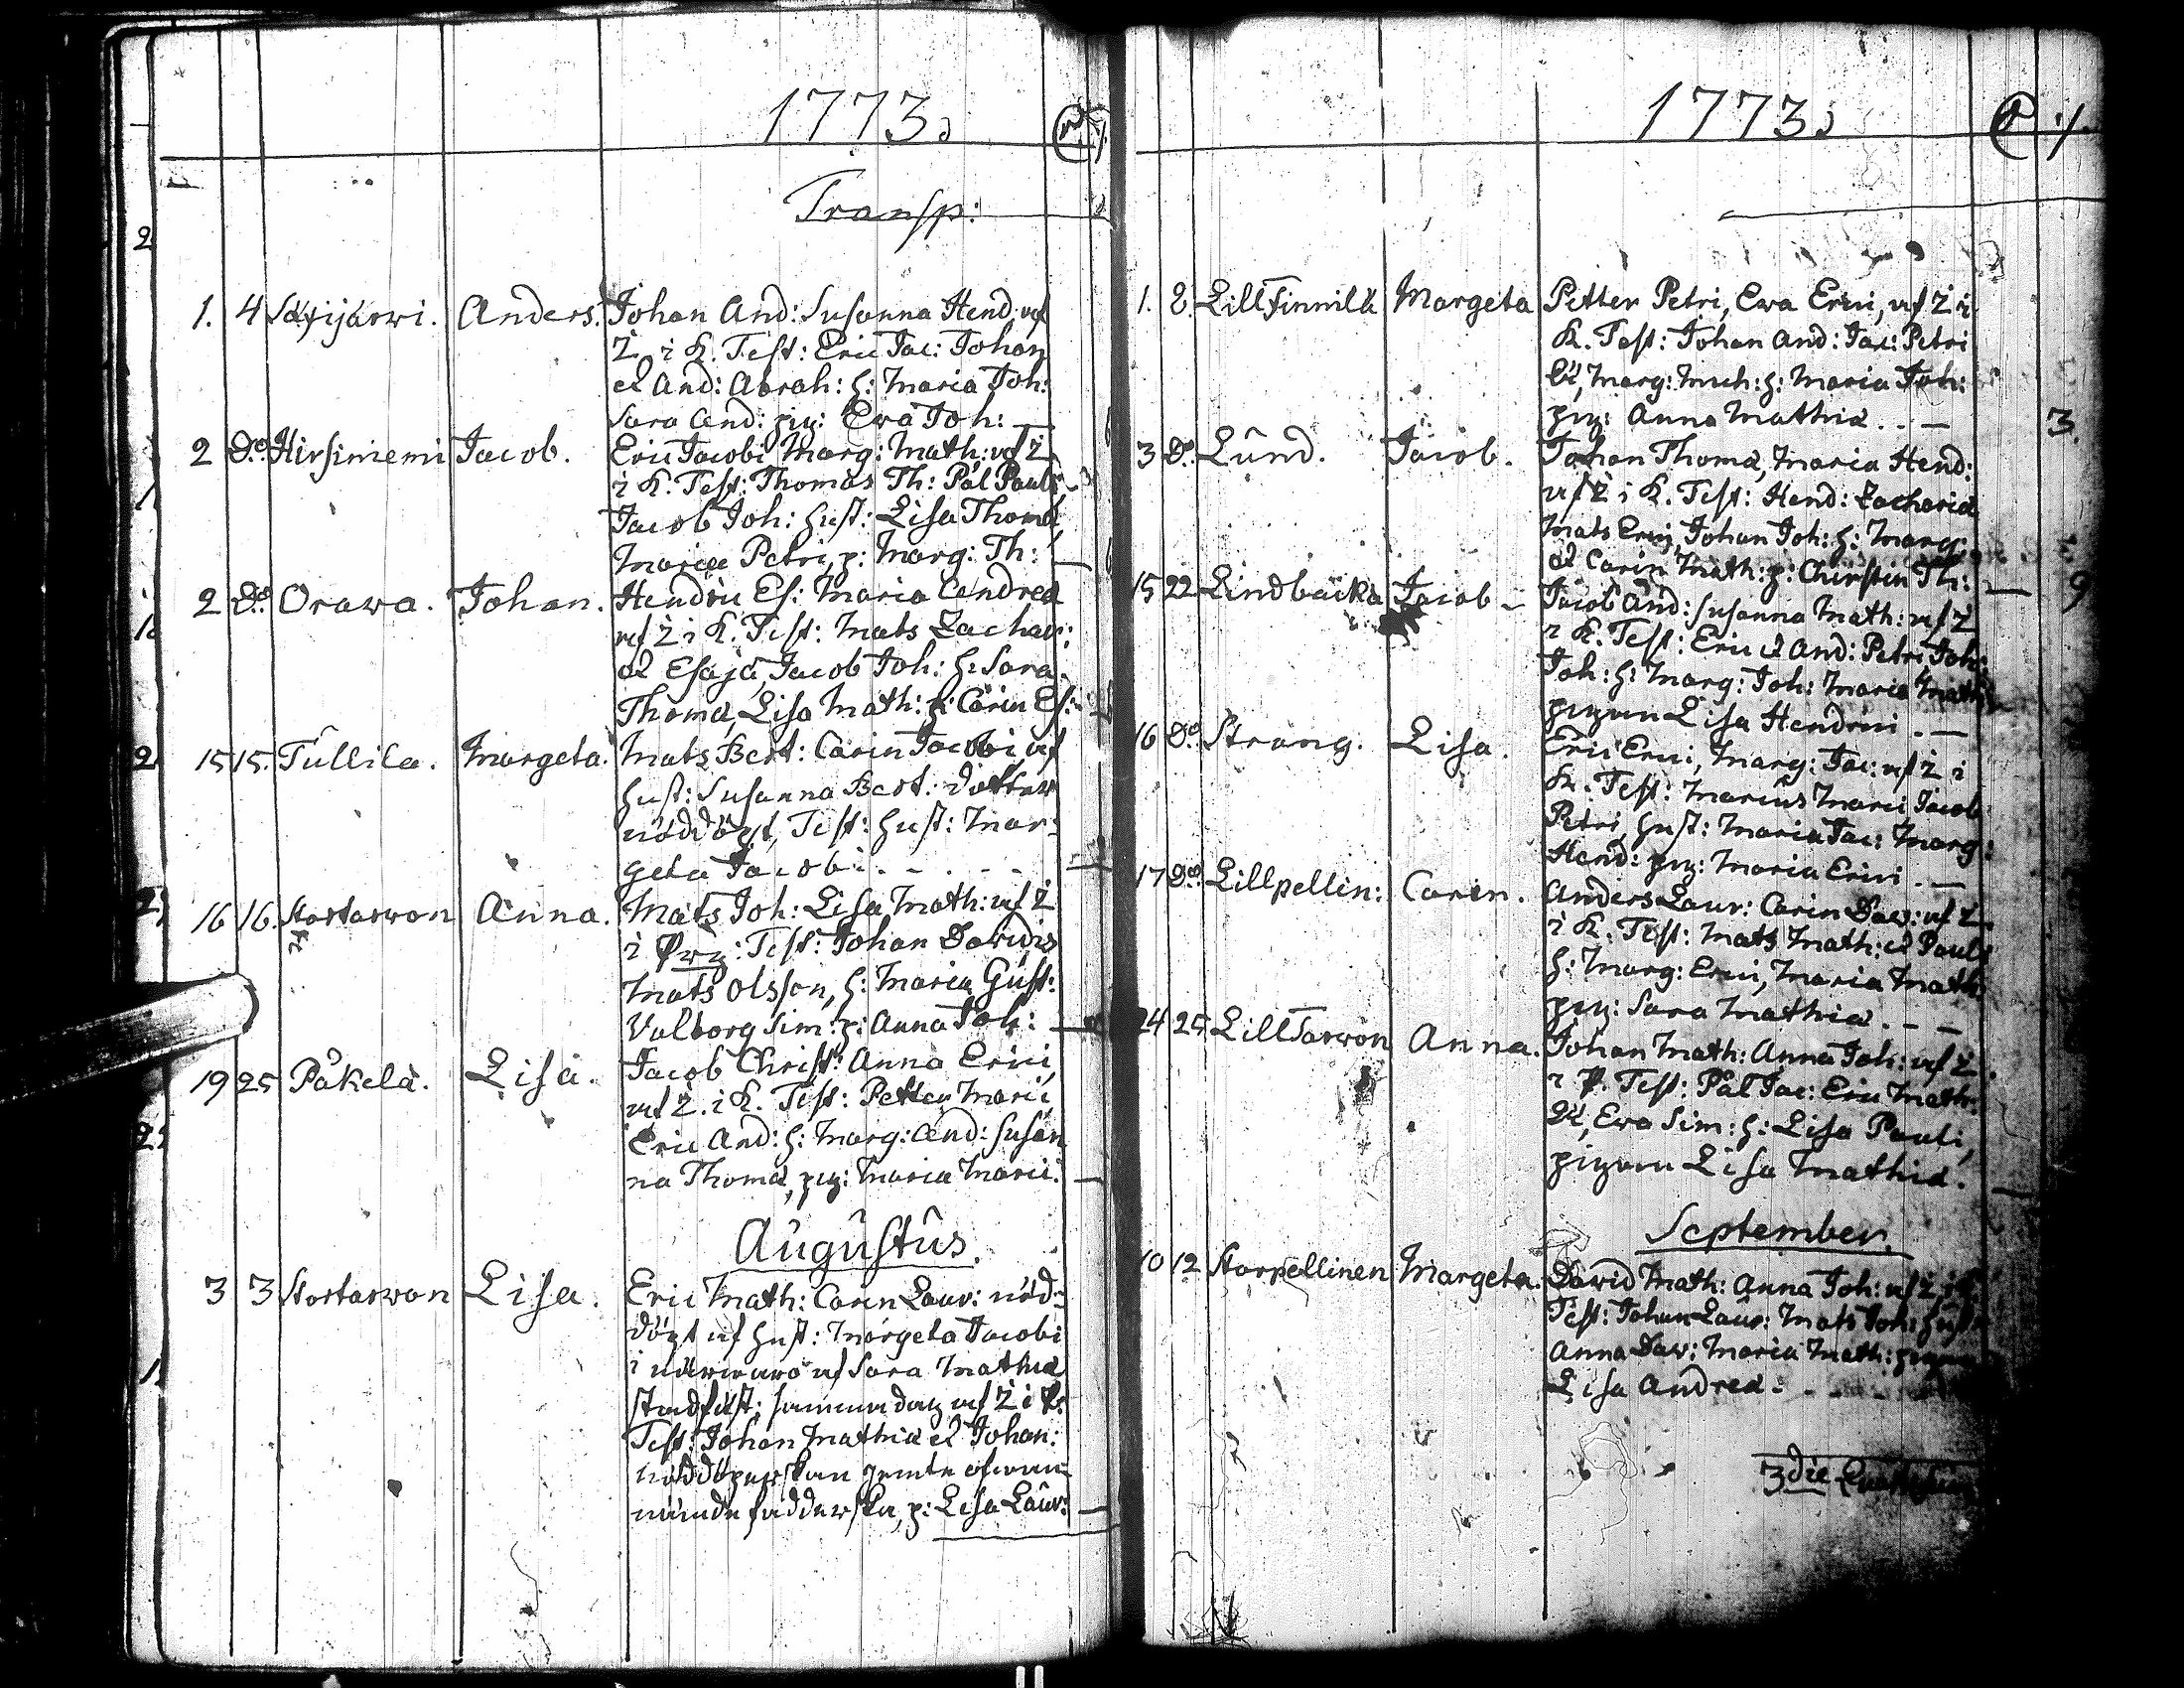 1773.
Transp:
1. 4 Säxijärwi. Anders. Johan And: Susanna Hend: af
Z i K. Test: Eric Jac: Johan
et And: Abrah: h: Maria Joh:
Sara And: pig: Ewa Joh:
2 Do. Hirsiniemi Jacob. Eric Jacobi Marg: Math: af Z
i K. Test: Thomas Th: Pål Pauli
Jacob Joh: hust: Lisa Thomæ
Maria Petri, p: Marg: Th:
2 Do. Orawa. Johan. Hendric Es: Maria Andreæ
af Z i K. Test: Mats Zachar:
et Esajæ, Jacob Joh: h: Sara
Thomæ, Lisa Math: p: Carin Es:
15 15. Tullila. Margeta. Mats Bert: Carin Jacobi af
hust: Susanna Bert: dotter
nöddöpt, Test: hust: Mar-
geta Jacobi.
16 16. Stortarwon Anna. Mats Joh: Lisa Math: af Z
i Test: Johan Dawidis
Mats Olsson, h: Maria Gust:
Valborg Sim: p: Anna Joh:
19 25 Påkela. Lisa. Jacob Christ: Anna Erici,
af Z. i K. Test: Petter Marci,
Eric And: h: Marg: And: Susan
na Thomæ, pig: Maria Marci.
Augustus.
3 3 Stortarwon Lisa. Eric Math: Carin Laur: nöd-
döpt af hust: Margeta Jacobi
i närwaro af Sara Mathiæ
stadfäst: samma dag af Z i P:
Test: Johan Mathiæ et Johan:
nöddöperskan jemte ofwan-
nämde fadderska, p: Lisa Laur:
1773.
1. 8. LillFinnilä Margeta Petter Petri, Ewa Erici, af Z i
K. Test: Johan And: Jac: Petri
Marg: Mich: h: Maria Joh:
pig: Anna Mathiæ.
3.
3 Do. Lund. Jacob. Johan Thomæ, Maria Hend:
af Z i K. Test: Hend: Zachariæ
Mats Erici, Johan Joh: h: Marg:
et Carin Math: p: Chirstin Th:
9
15 22 Lindbacka Jacob Jacob And: Susanna Math: af Z
i K. Test: Eric et And: Petri Joh:
Joh: h: Marg: Joh: Maria Math:
pigan Lisa Hendrici
16 Do. Strang. Lisa. Eric Erici, Marg: Jac: af Z i
K. Test: Marcus Marci Jacob
Petri, hust: Maria Jac: Marg:
Hend: pig: Maria Erici
17 Do. Lillpellin: Caren. Anders Laur: Carin Daw: af Z
i K. Test: Mats Math: et Pauli
h: Marg: Erici, Maria Math:
pig: Sara Mathiæ.
24 25 LillTarwon Anna. Johan Math: Anna Joh: af Z
i P. Test: Pål Jac: Eric Math:
Ewa Sim: h: Lisa Pauli,
pigan Lisa Mathiæ.
September.
10 12 Storpellinen Margeta. Dawid Math: Anna Joh: af Z i
Test: Johan Laur: Mats Joh: hust:
Anna Daw: Maria Math: pigan
Lisa Andreæ.
3die